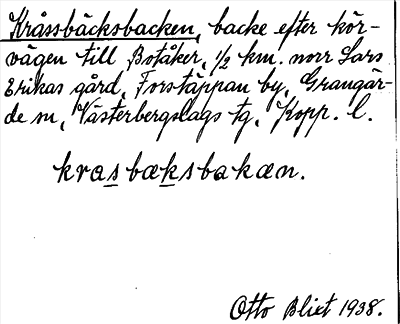 Kråssbäcksbacken, backe efter kör-
vägen till Botåker, 1/2 km. norr Lars
Erikas gård, Forstäppan by, Grangär-
de sn, Västerbergslags tg, Kopp. l.
krasbæksbakæn.
Otto Blixt 1938.